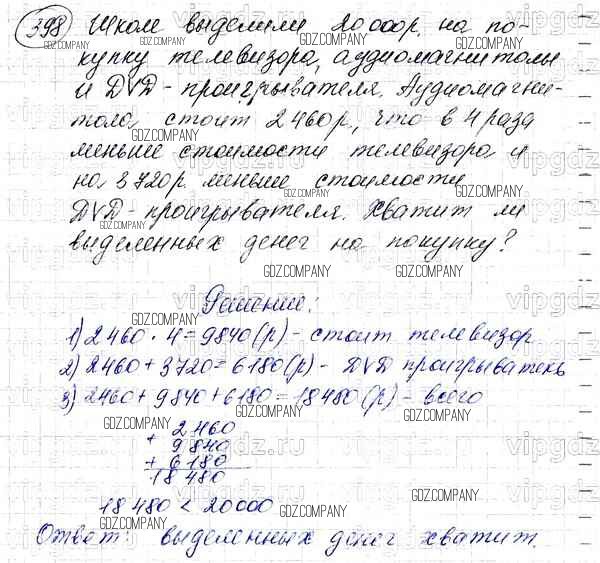 398 Школе выделили 20000р. на по-
купку телевизора, аудиомагнитолы
и DVD-проигрывателя. Аудиомагни-
тола стоит 2460р, что в 4 раза
меньше стоимости телевизора и
на 3720р. меньше стоимости
DVD-проигрывателя. Хватит ли
выделенных денег на покупку?
Решение:
1) 2460 · 4 = 9840 (р) - стоит телевизор
2) 2460 + 3720 = 6180 (р) - DVD проигрыватель
3) 2460 + 9840 + 6180 = 18480 (р) - всего
2460
+ 9840
+ 6180
18480
18480 < 20000
Ответ: выделенных денег хватит.
GDZ.COMPANY
vipgdz.ru